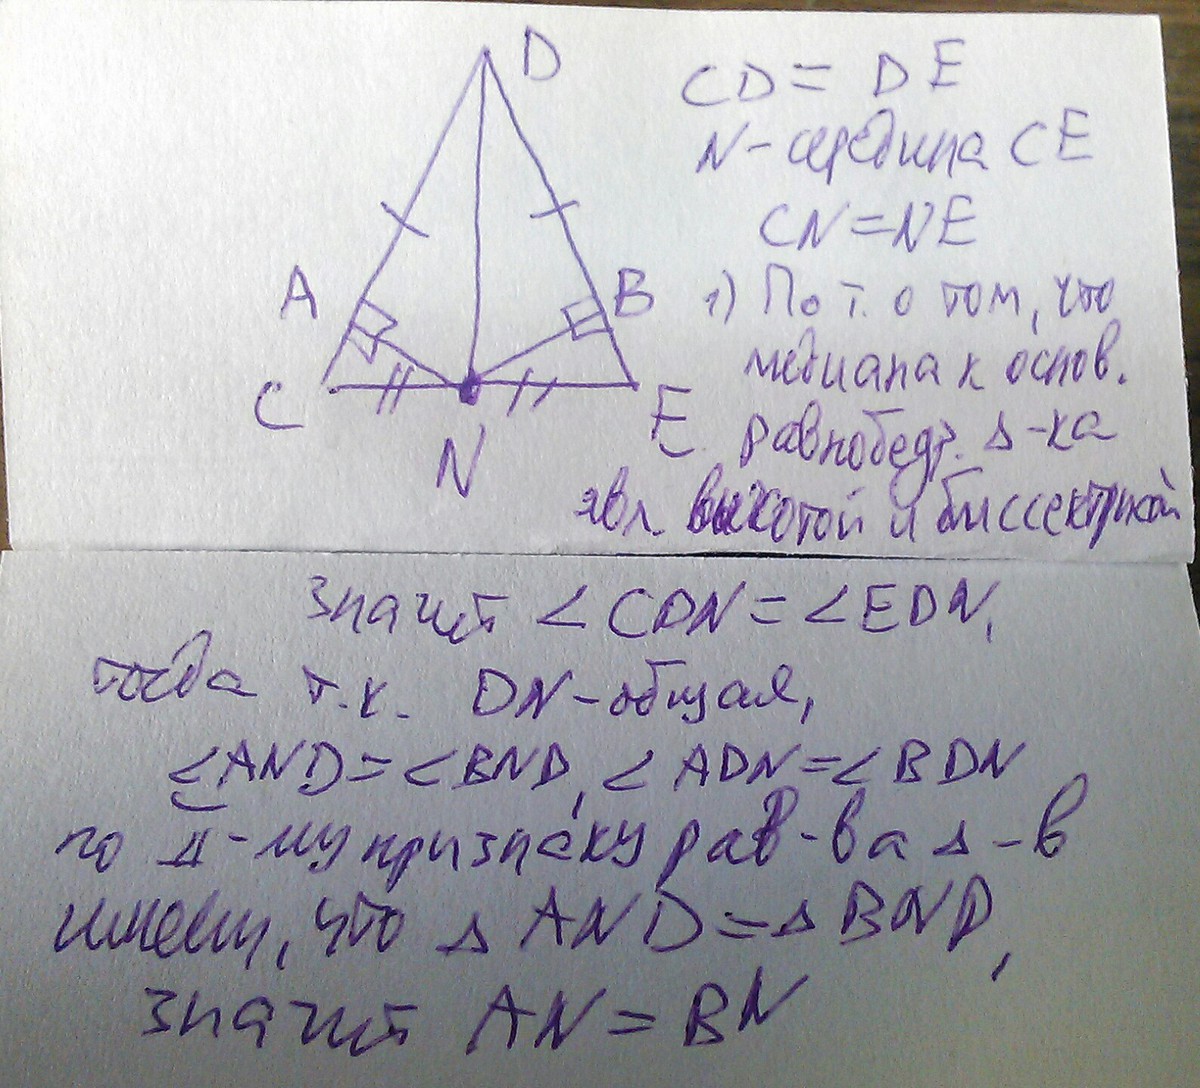 D
CD = DE
N - середина CE
CN = NE
A
B
1) По т. о том, что
медиана к основ.
C
E
N
равнобедр. Δ-ка
явл. высотой и биссектрисой
значит ∠CDN = ∠EDN,
тогда т.к. DN - общая,
∠AND = ∠BND, ∠ADN = ∠BDN
по II-му признаку рав-ва Δ-в
имеем, что Δ AND = Δ BND,
значит AN = BN